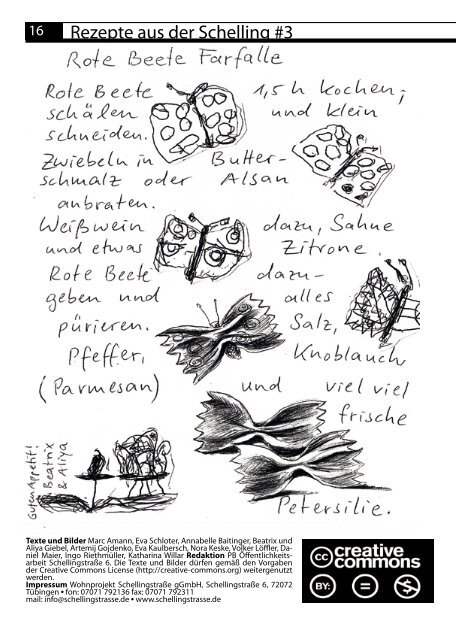 16 Rezepte aus der Schelling #3
Rote Beete Farfalle
Rote Beete 1,5 h kochen;
schälen und klein
schneiden.
Zwiebeln in Butter-
schmalz oder Alsan
anbraten.
Weißwein dazu, Sahne
und etwas Zitrone.
Rote Beete dazu-
geben und alles
pürieren. Salz,
Pfeffer, Knoblauch
(Parmesan) und viel viel
frische
Petersilie.
Guten Appetit!
Beatrix
& Aliya
Texte und Bilder Marc Amann, Eva Schloter, Annabelle Baitinger, Beatrix und
Aliya Giebel, Artemij Gojdenko, Eva Kaulbersch, Nora Keske, Volker Löffler, Da-
niel Maier, Ingo Riethmüller, Katharina Willar Redaktion PB Öffentlichkeits-
arbeit Schellingstraße 6. Die Texte und Bilder dürfen gemäß den Vorgaben
der Creative Commons License (http://creative-commons.org) weitergenutzt
werden.
Impressum Wohnprojekt Schellingstraße gGmbH, Schellingstraße 6, 72072
Tübingen • fon: 07071 792136 fax: 07071 792311
mail: info@schellingstrasse.de • www.schellingstrasse.de
cc creative
commons
BY: = $